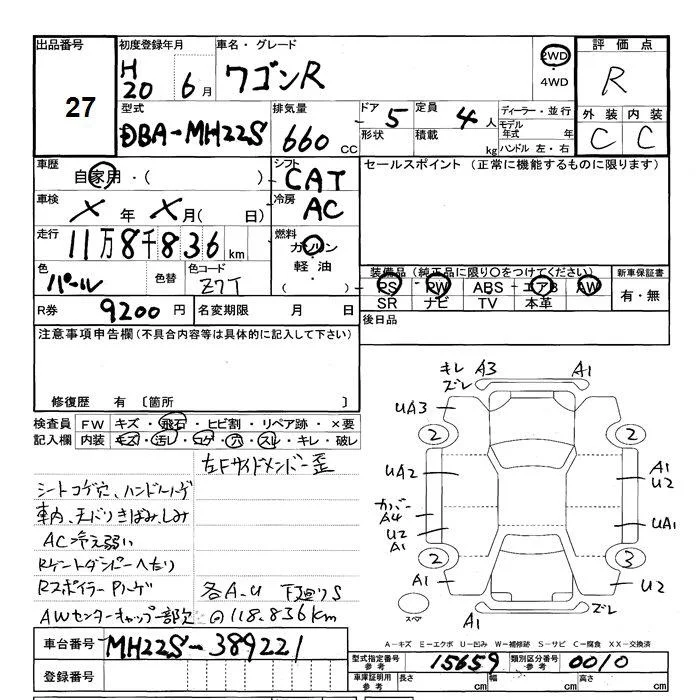 出品番号
27
初度登録年月
H
20 6月
車名・グレード
ワゴンR
2WD
4WD
評価点
R
外装 内装
C C
型式
DBA-MH22S
排気量
660 CC
ドア 5
形状
定員 4人
積載 kg
ディーラー・並行
モデル年式 年
ハンドル 左・右
車歴
自家用・( )
シフト
CAT
セールスポイント (正常に機能するものに限ります)
車検
X年 X月( 日)
冷房
AC
走行
11万8千836km
燃料
ガソリン
軽油
( )
色
パール
色替
色コード
Z7T
装備品 (純正品に限り○をつけてください)
PS PW ABS エアB AW
SR ナビ TV 本革
新車保証書
有・無
R券 9200円
名変期限 月 日
後日品
注意事項申告欄(不具合内容等は具体的に記入して下さい)
修復歴 有 〔箇所 〕
検査員記入欄
FW キズ・飛石・ヒビ割・リペア跡・×要
内装 キズ・汚レ・コゲ・穴・スレ・キレ・破レ
左Fサイドメンバー歪
シートコゲ穴、ハンドルハゲ
車内、天バリきばみ、しみ
AC冷え弱い
Rゲートダンパーへたり
Rスポイラー Pハゲ
各A.U 下廻りS
AWセンターキャップ一部欠
118.836km
キレ
ズレ
A3
A1
UA3
2
2
UA2
A1
U2
カバー
A4
U2
A1
UA1
2
3
A1
U2
スペア
A1
ズレ
A-キズ E-エクボ U-凹み W-補修跡 S-サビ C-腐食 XX-交換済
車台番号
MH22S-389221
登録番号
型式指定番号
参考
15659
類別区分番号
参考
0010
車庫証明用
参考
長さ cm
幅 cm
高さ cm